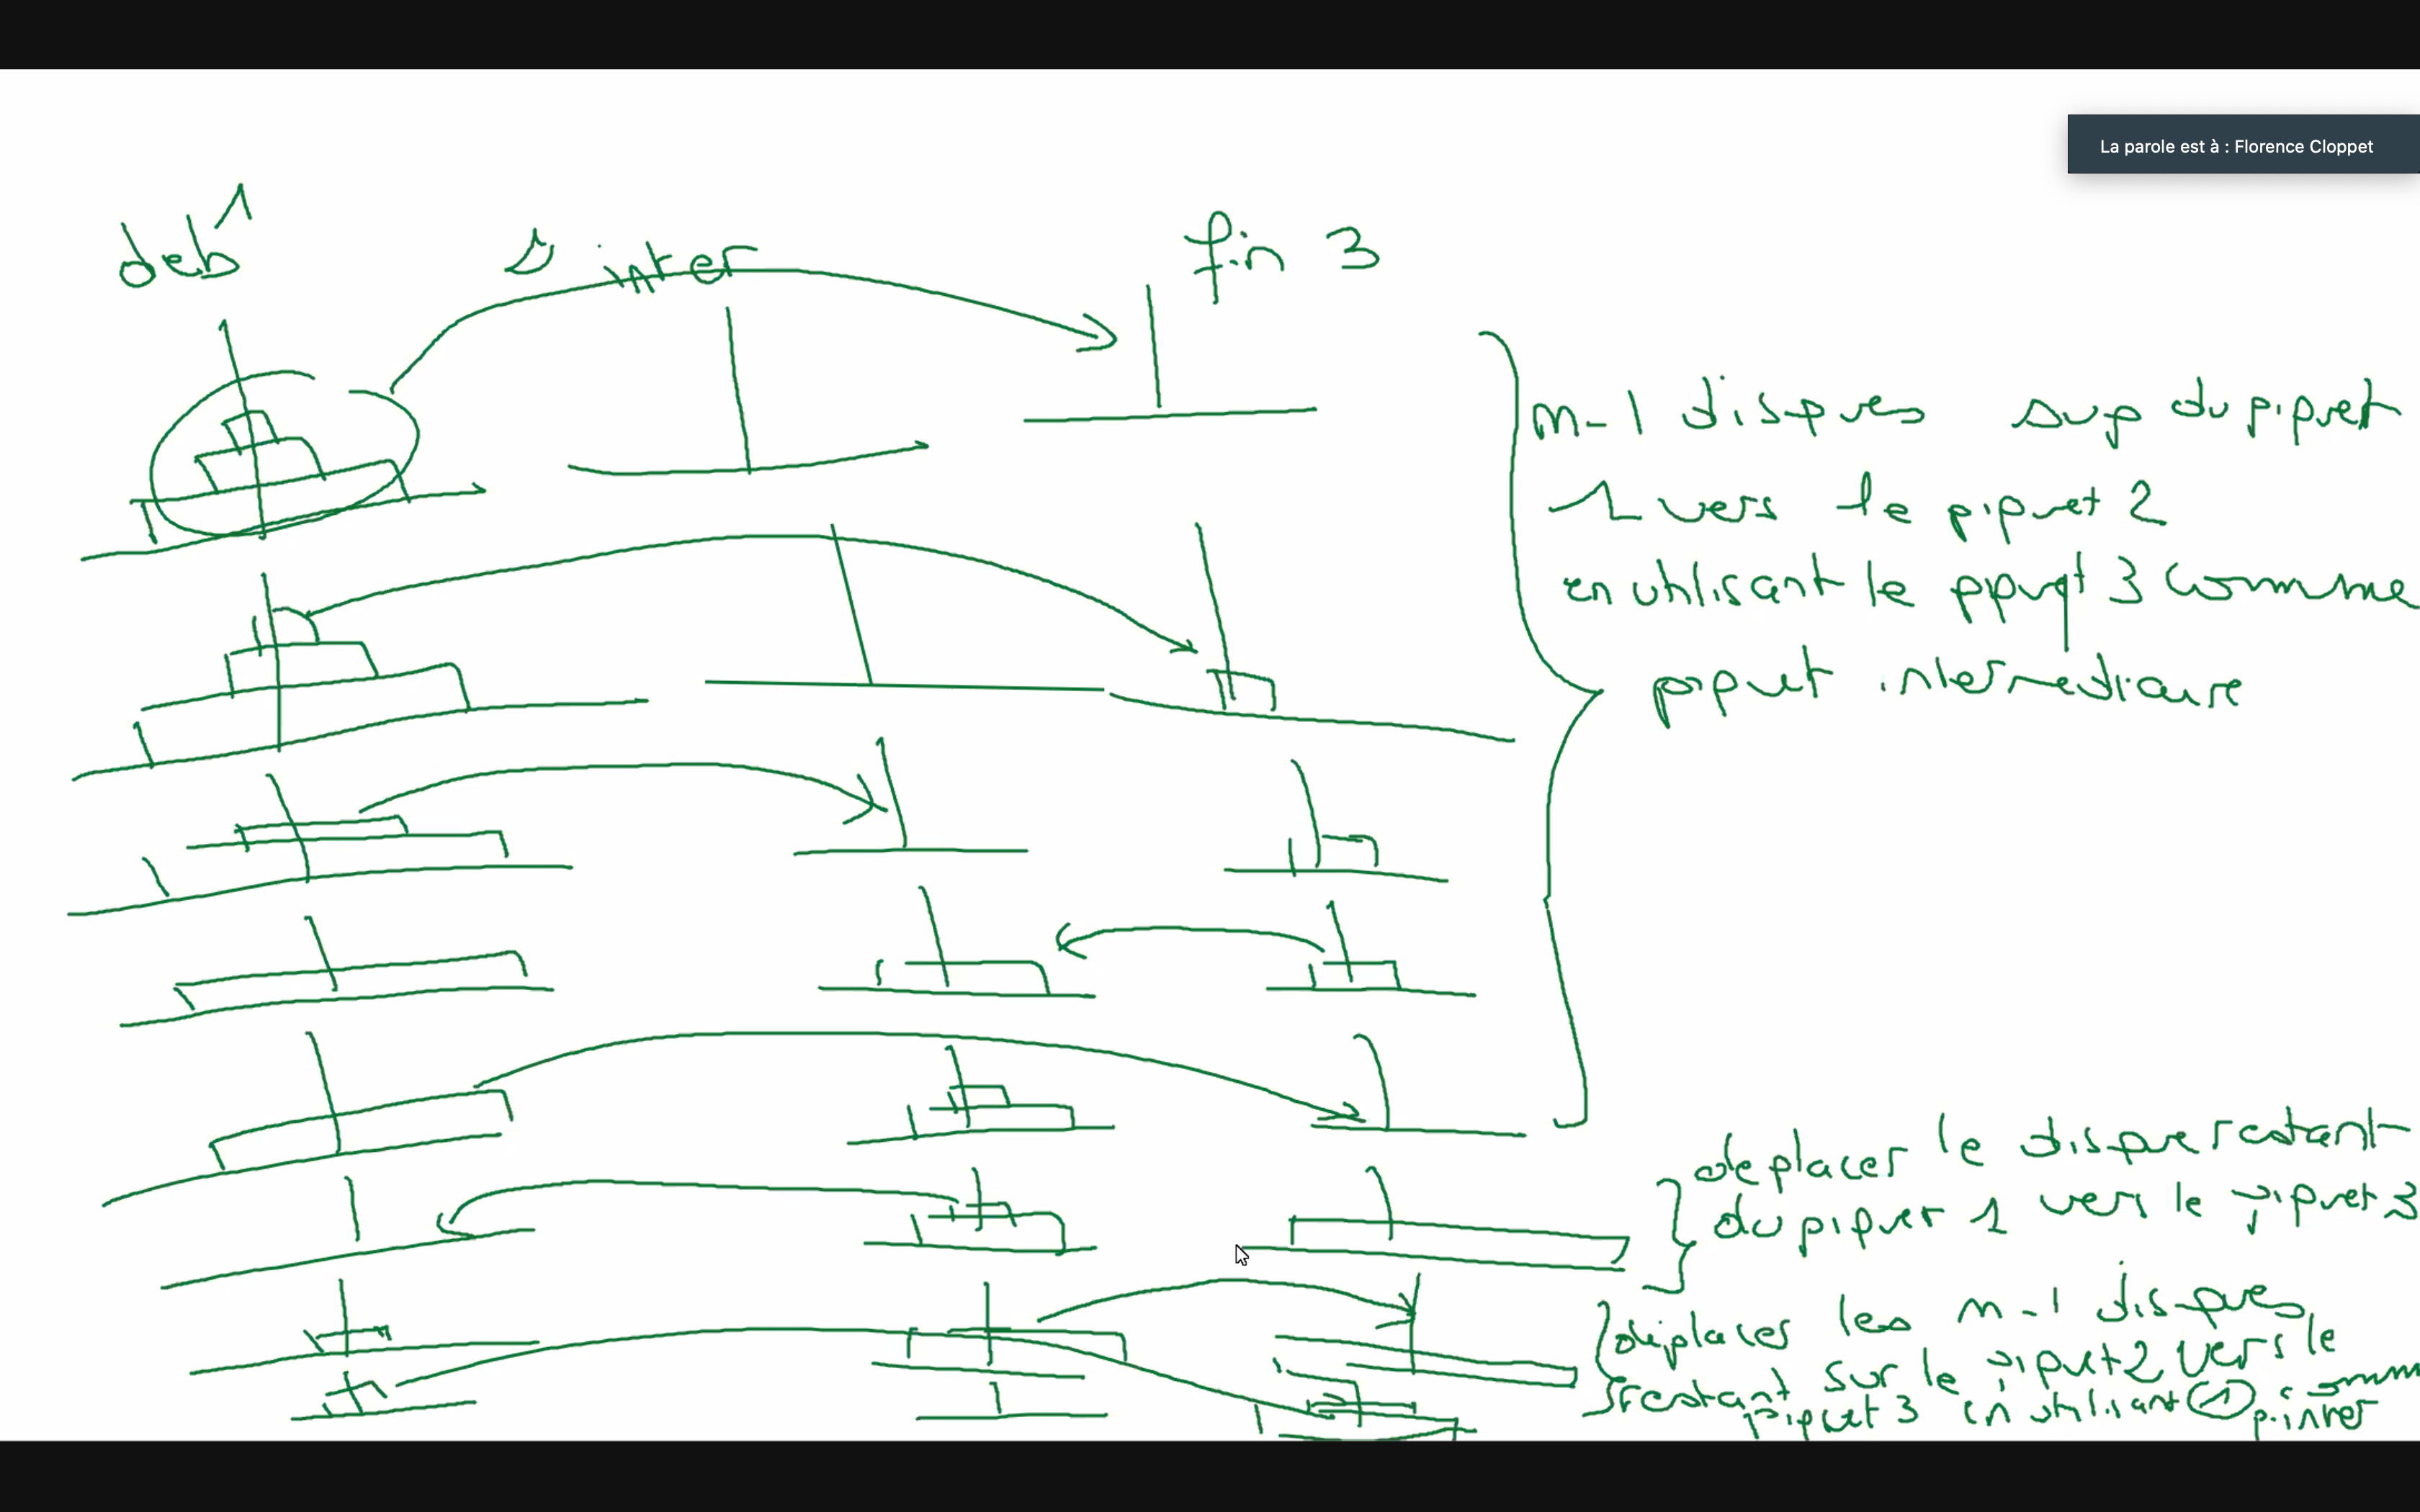 La parole est à : Florence Cloppet
deb 1
2 inter
fin 3
n-1 disques sup du piquet
1 vers le piquet 2
en utilisant le piquet 3 comme
piquet intermediaire
déplacer le disque restant
du piquet 1 vers le piquet 3
déplacer les n-1 disques
restant sur le piquet 2 vers le
piquet 3 en utilisant 1 comm
p.inter